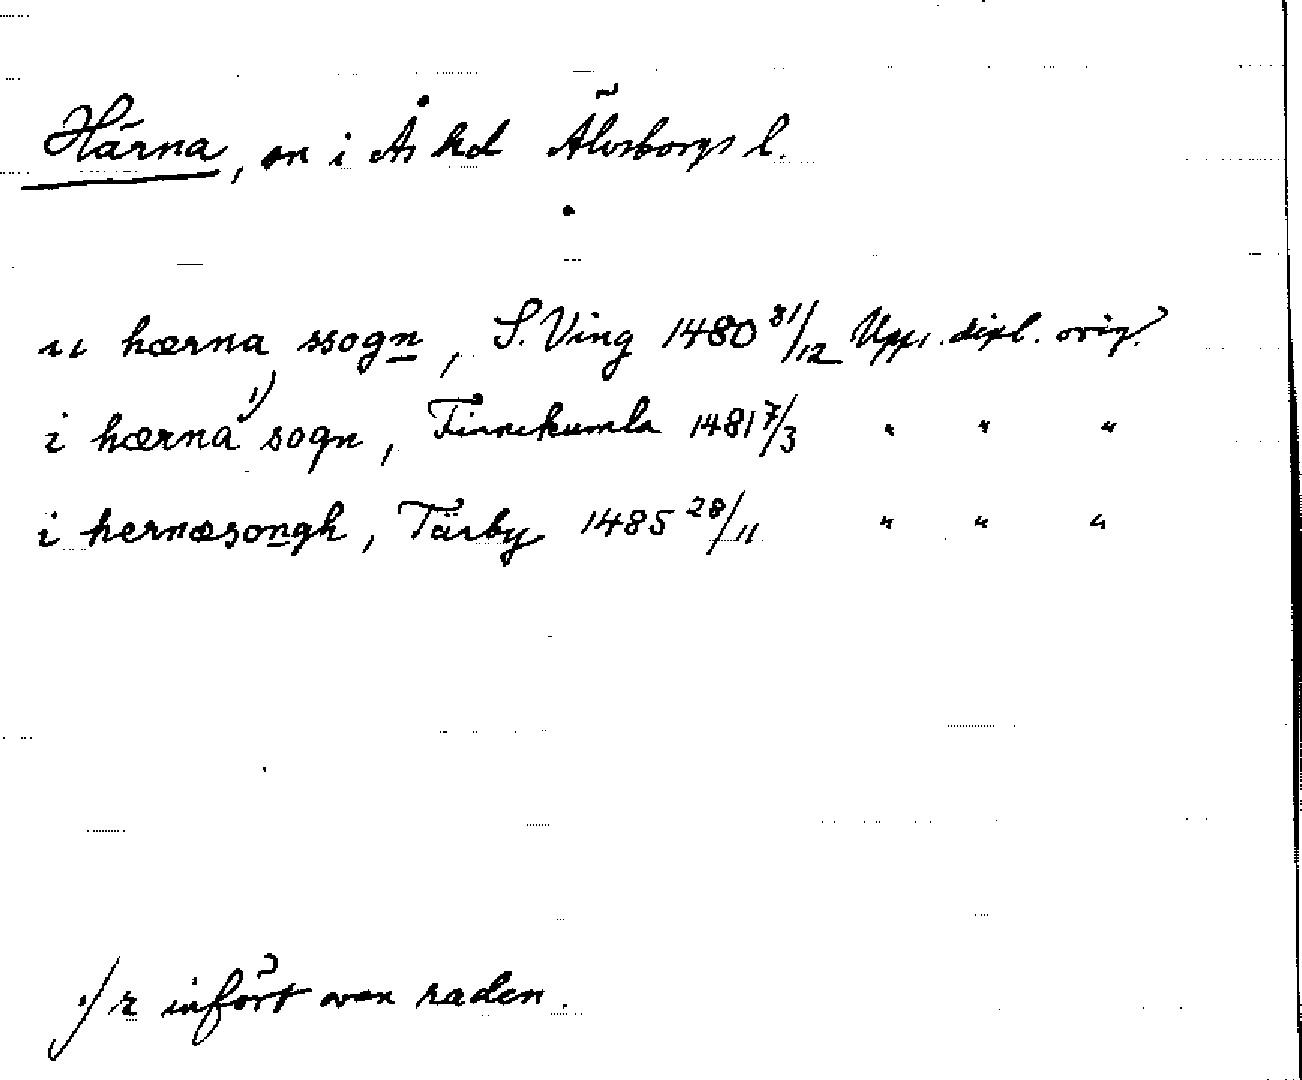 Härna, sn i Ås hd Älvsborgs l.
i hærna ssogn, S. Ving 1480 31/12 Upps. dipl. orig.
i hærna 1) sogn, Finnekumla 1481 7/3 " " "
i hernæsongh, Tärby 1485 28/11 " " "
1) r infört ovan raden.